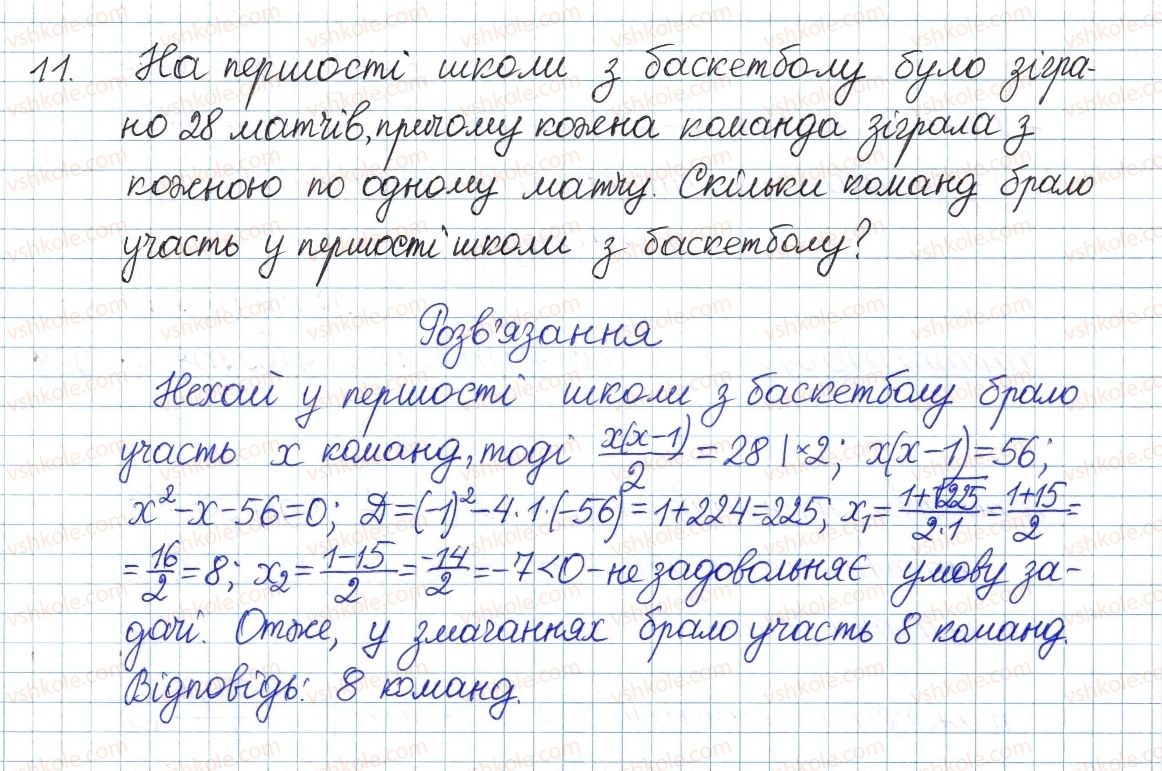 11. На першості школи з баскетболу було зігра-
но 28 матчів, причому кожна команда зіграла з
кожною по одному матчу. Скільки команд брало
участь у першості школи з баскетболу?
Розв'язання
Нехай у першості школи з баскетболу брало
участь x команд, тоді x(x-1)/2 = 28 |×2; x(x-1)=56;
x²-x-56=0; Д=(-1)²-4·1·(-56)=1+224=225; x₁=(1+√225)/(2·1)=(1+15)/2=
=16/2=8; x₂=(1-15)/2=-14/2=-7<0-не задовольняє умову за-
дачі. Отже, у змаганнях брало участь 8 команд.
Відповідь: 8 команд.
vshkole.com